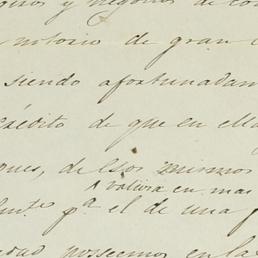 y negocios de co
notorio de gran
siendo afortunadam
crédito de que en ella
ques, de los mismos
valiosa en mas
pª el de una
poseemos en la